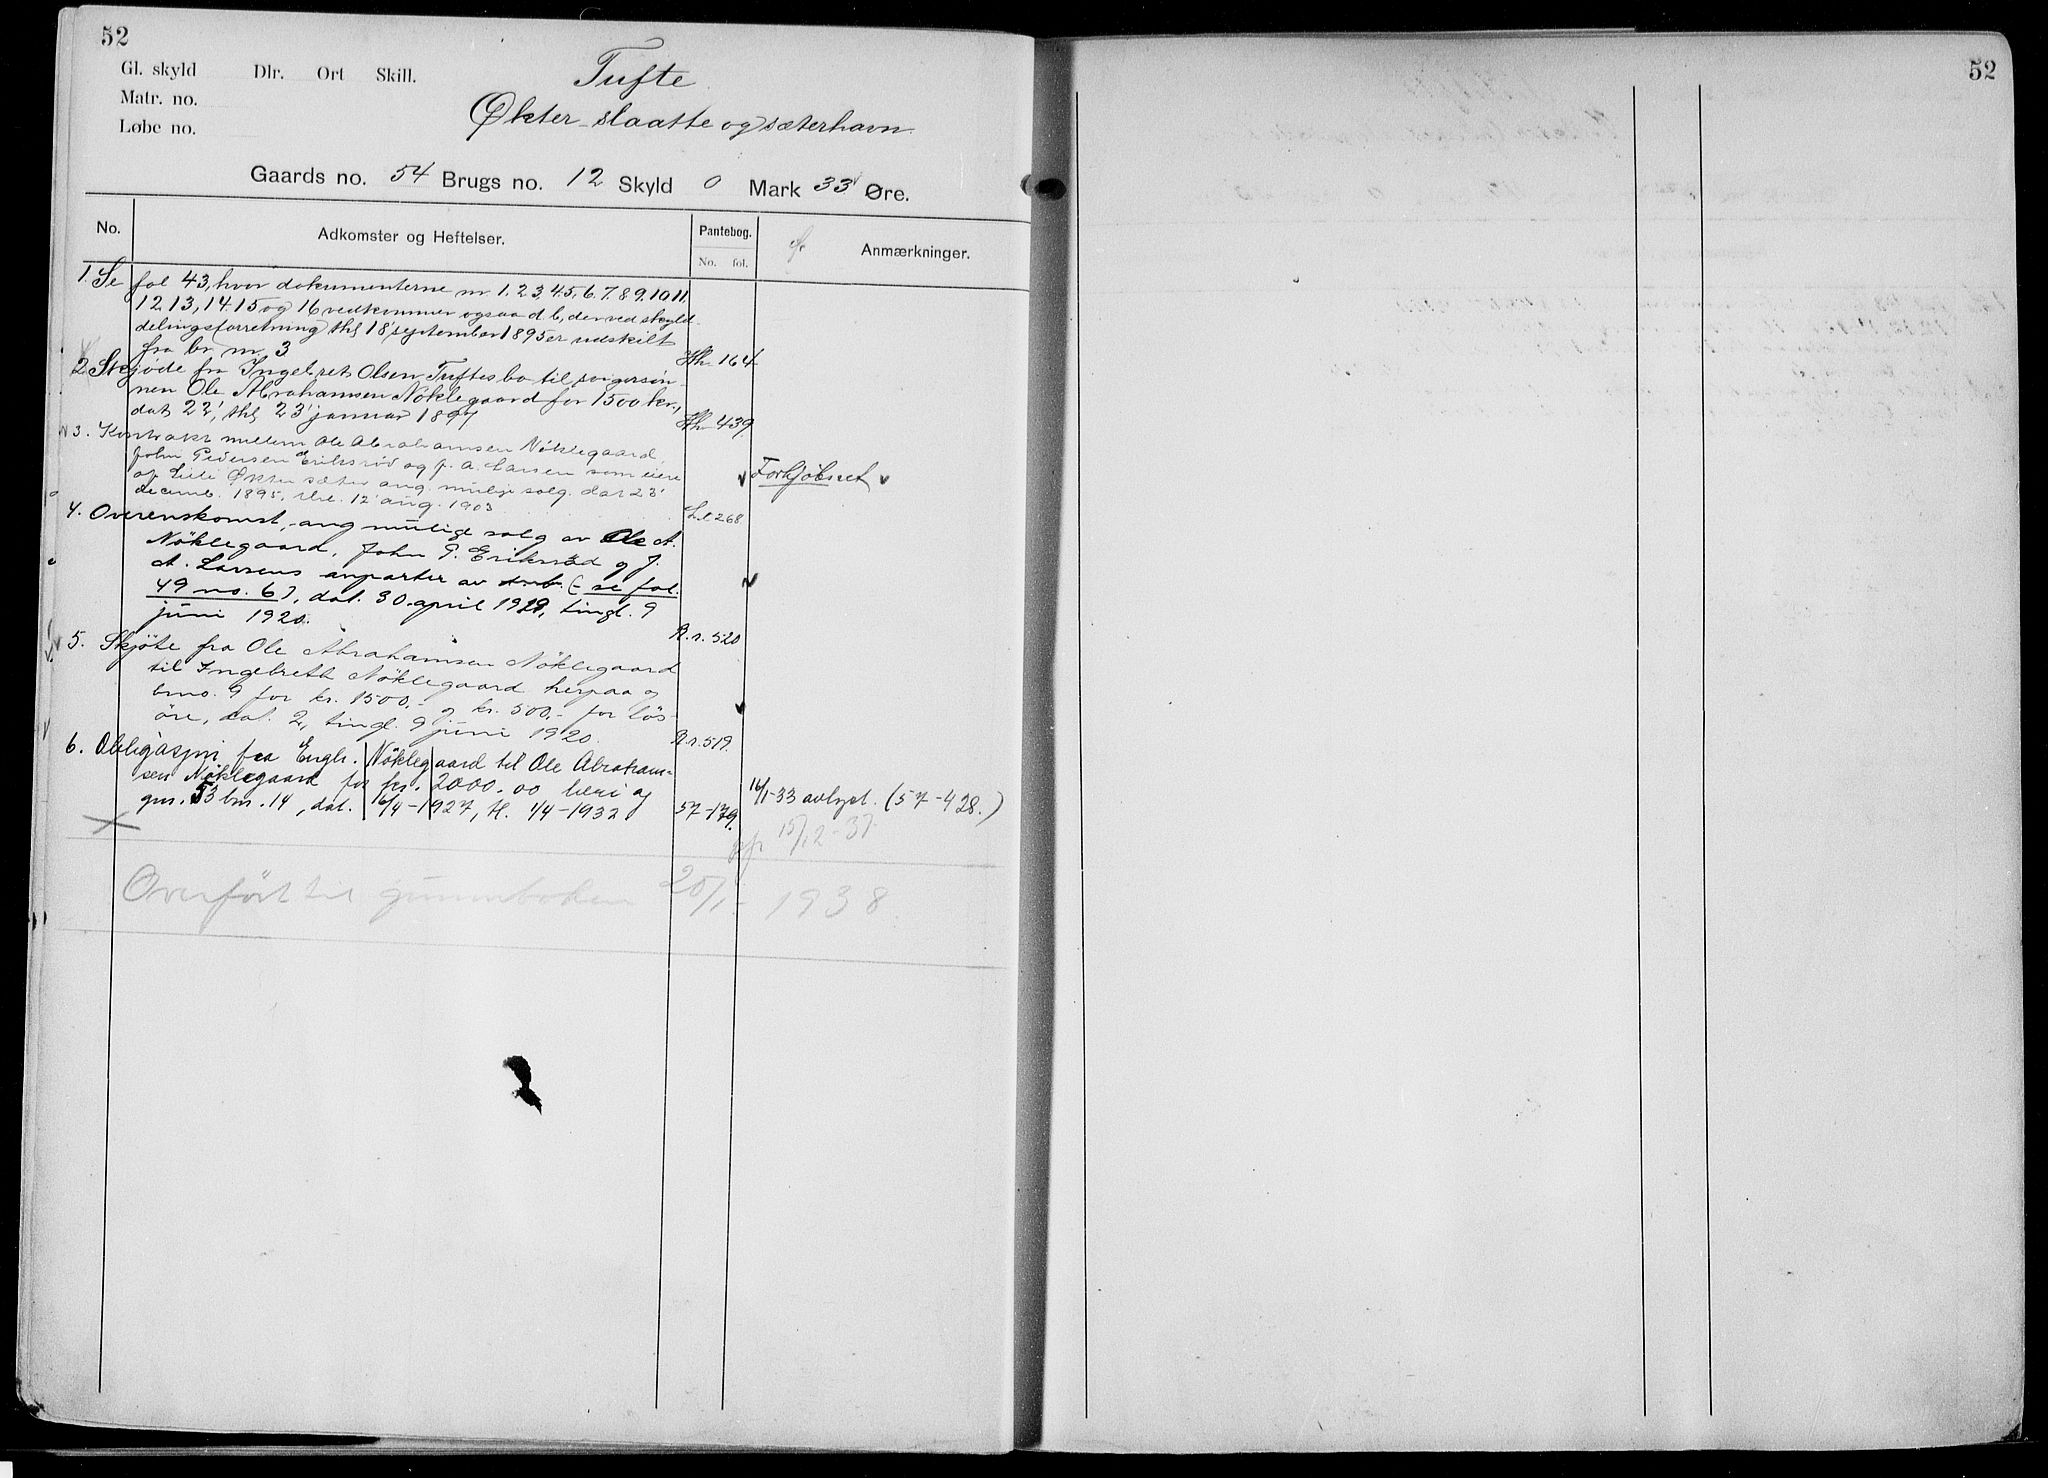 52
Gl. skyld Dlr. Ort Skill.
Matr. no.
Løbe no.
Tufte
Økter-slaatte og sæterhavn
Gaards no. 54 Brugs no. 12 Skyld 0 Mark 33 Øre.
No. Adkomster og Heftelser. Pantebog. No. fol. Anmærkninger.
1. Se fol 43, hvor dokumenterne nr 1. 2. 3. 4. 5. 6. 7. 8. 9. 10. 11.
12. 13, 14. 15 og 16 vedkommer ogsaa d b, der ved skyld
delingsforretning thl 18' september 1895 er udskilt
fra br. nr 3 164
2. Skjøde fra Ingebret Olsen Tuftes bo til svigersøn
nen Ole Abrahamsen Nøklegaard for 1500 kr.,
dat 22', thl 23' januar 1897 439
3. Kontrakt mellem Ole Abrahamsen Nöklegaard,
John Pedersen Eriksröd og J. A. Larsen som eiere
af Lille Økter sæter ang. mulige salg. dat 23'
decemb. 1895, 12' aug. 1903 268
Forkjøbsret
4. Overenskomst, ang mulige salg av Ole A.
Nöklegaard, John P. Eriksröd og J.
A. Larsens anparter av (- se fol.
49 no. 6), dat. 30 april 1929, tingl. 9
juni 1920. R. r. 520
5. Skjöte fra Ole Abrahamsen Nöklegaard
til Ingebreth Nöklegaard herpaa og
bno. 9 for kr. 1500,- og kr. 500,- for lös-
öre, dat. 2, tingl. 9 juni 1920. R. r. 519.
6. Obligasjon fra Engbr. Nöklegaard til Ole Abraham-
sen Nöklegaard for kr. 2000.00 heri og
gnr. 53 bnr. 14, dat. 6/4-1927, tl. 1/4-1932 57-179.
16/1-33 avlyst. (57-428.)
15/12-37
Overfört til grunnboken 25/1- 1938
52